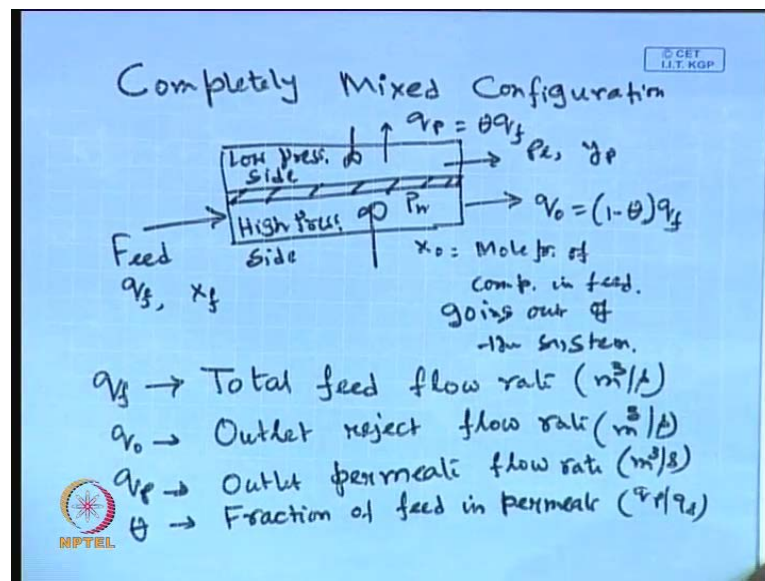 © CET
I.I.T. KGP
Completely Mixed Configuration
qp = θqf
Low Press.
side
Pl, yp
Ph
High Press.
side
qo = (1-θ)qf
Feed
qf, xf
xo = Mole fr. of
comp. in feed.
going out of
the system.
qf → Total feed flow rate (m³/s)
qo → Outlet reject flow rate (m³/s)
qp → Outlet permeate flow rate (m³/s)
θ → Fraction of feed in permeate (qp/qf)
NPTEL